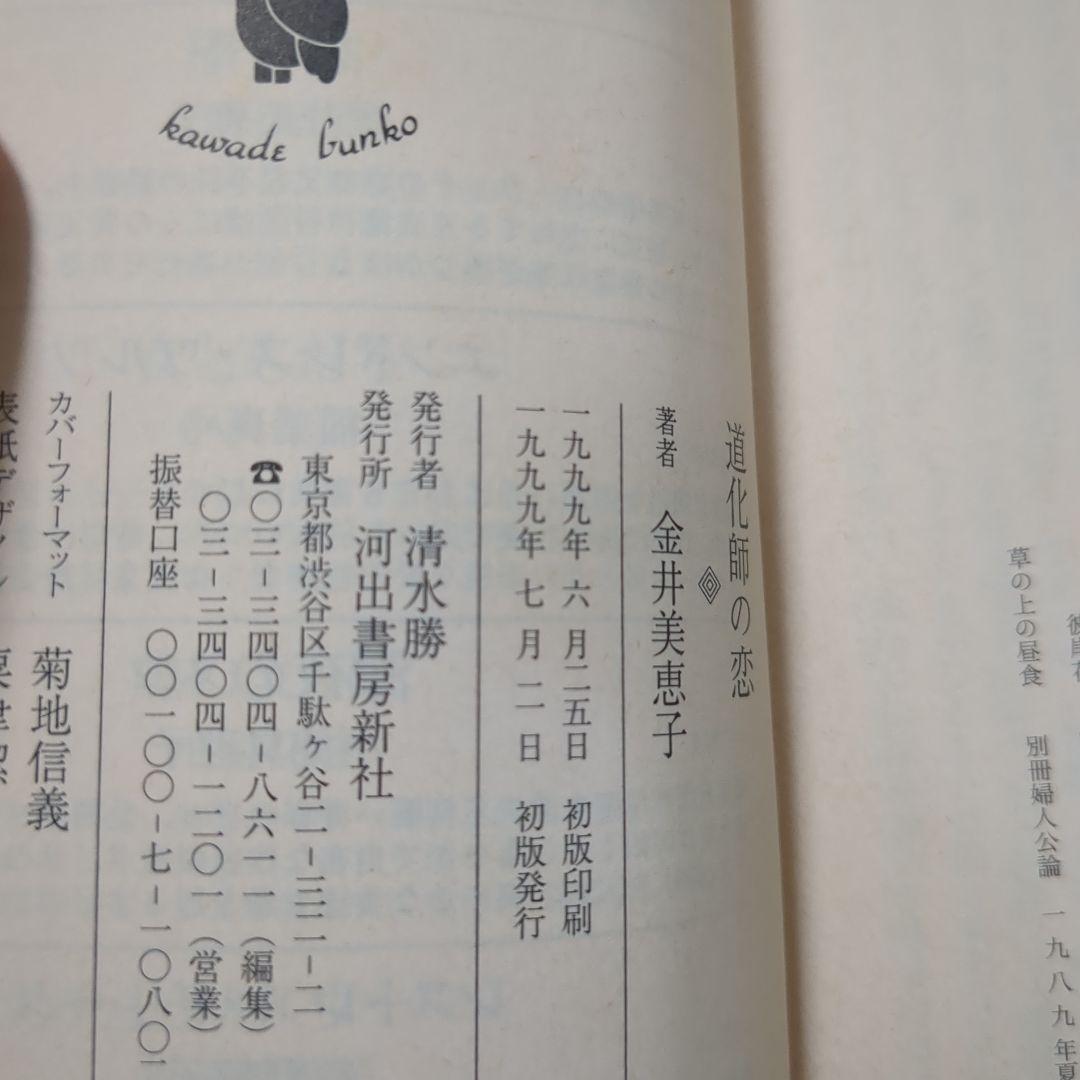 草の上の昼食　別冊婦人公論　一九八九年夏
kawade bunko
道化師の恋
著者　金井美恵子
一九九九年　六　月二五日　初版印刷
一九九九年　七　月　二　日　初版発行
発行者　清水勝
発行所　河出書房新社
東京都渋谷区千駄ヶ谷二－三二－二
☎〇三－三四〇四－八六一一（編集）
〇三－三四〇四－一二〇一（営業）
振替口座　〇〇一〇〇－七－一〇八〇
カバーフォーマット　菊地信義
表紙デザイン